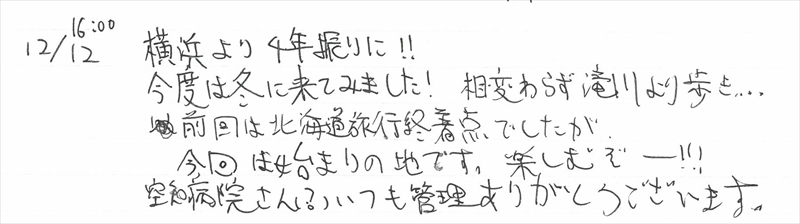 12/12 16:00 横浜より4年振りに!!
今度は冬に来てみました! 相変わらず滝川より歩き...
前回は北海道旅行終着点でしたが、
今回は始まりの地です。楽しむぞー!!!
空知病院さん?いつも管理ありがとうございます。